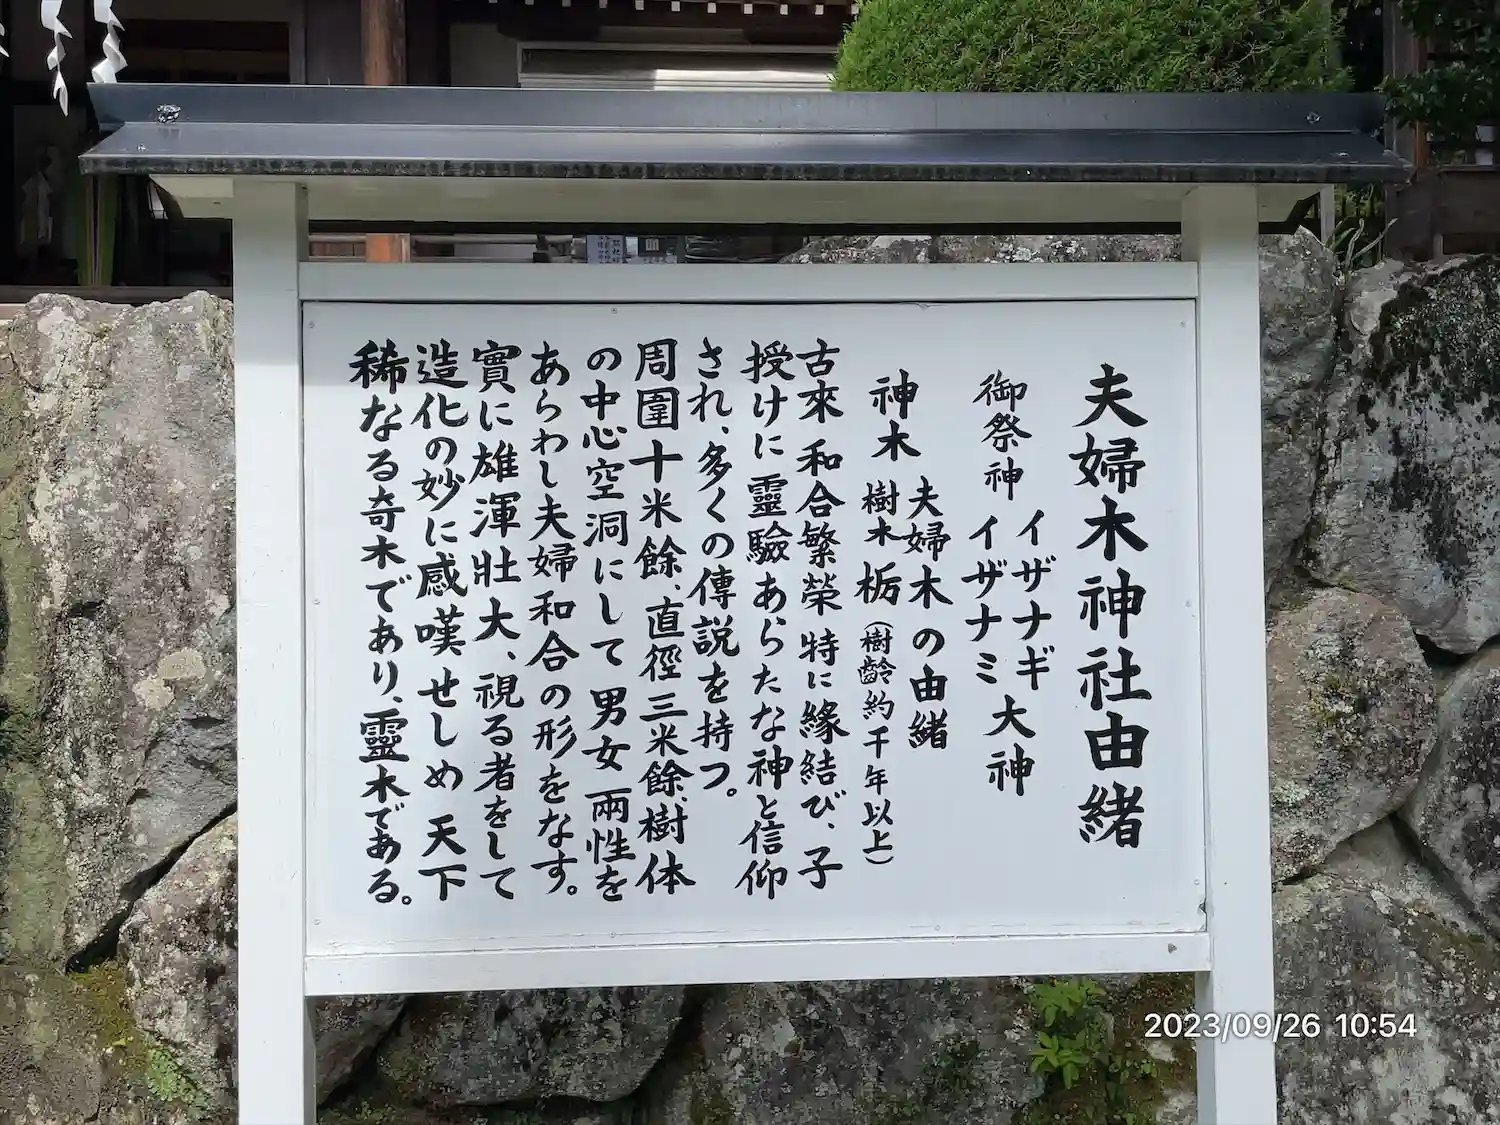 夫婦木神社由緒
御祭神
イザナギ
イザナミ
大神
神木
夫婦木の由緒
樹木栃（樹齢約千年以上）
古來和合繁榮特に緣結び、子
授けに靈驗あらたな神と信仰
され、多くの傳説を持つ。
周圍十米餘、直徑三米餘、樹体
の中心空洞にして男女兩性を
あらわし夫婦和合の形をなす。
實に雄渾壯大、視る者をして
造化の妙に感嘆せしめ天下
稀なる奇木であり、靈木である。
2023/09/26 10:54